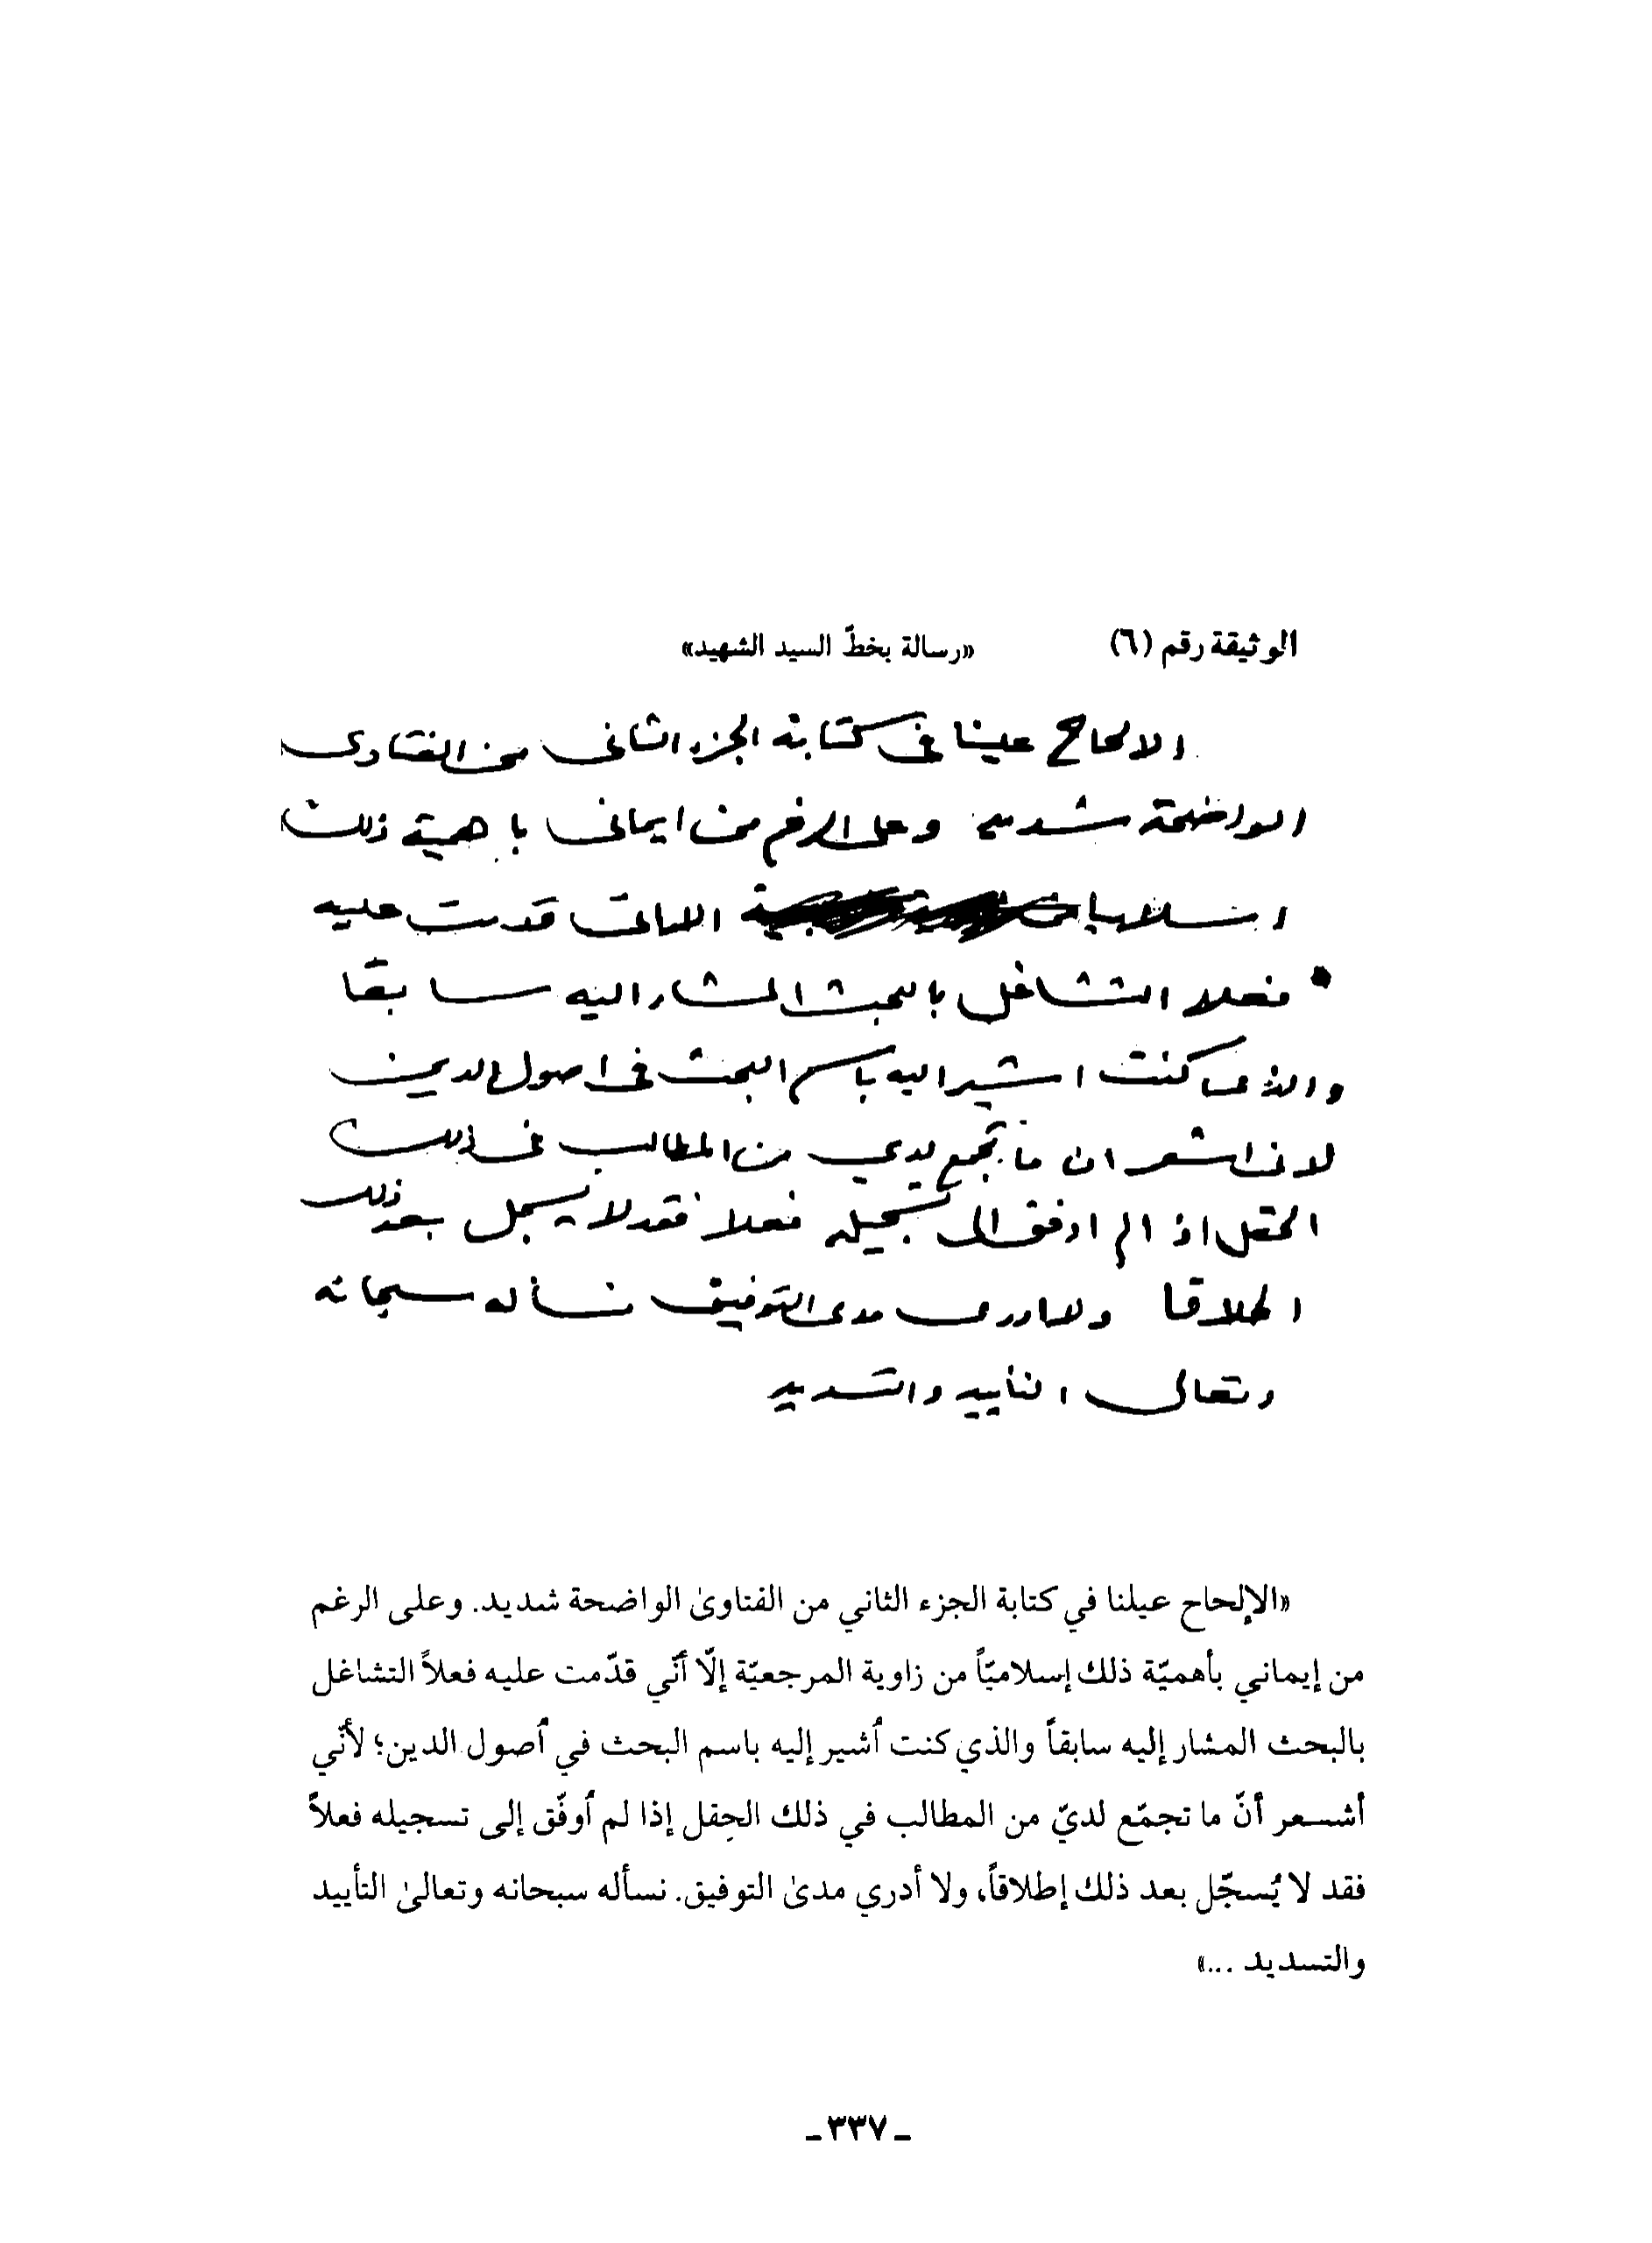 الوثيقة رقم (٦) «رسالة بخطّ السيد الشهيد»
الالحاح علينا في كتابة الجزء الثاني من الفتاوى
الواضحة شديد وعلى الرغم من ايماني باهمية ذلك
اسلاميا الا اني قدمت عليه
فعلا التشاغل بالبحث المشار اليه سابقا
والذي كنت اشير اليه باسم البحث في اصول الدين
لاني اشعر ان ما تجمع لدي من المطالب في ذلك
الحقل اذا لم اوفق الى تسجيله فعلا فقد لا يسجل بعد ذلك
اطلاقا ولا ادري مدى التوفيق نسأله سبحانه
وتعالى التأييد والتسديد
«الإلحاح عيلنا في كتابة الجزء الثاني من الفتاوىٰ الواضحة شديد. وعلى الرغم
من إيماني بأهميّة ذلك إسلاميّاً من زاوية المرجعيّة إلّا أنّي قدّمت عليه فعلاً التشاغل
بالبحث المشار إليه سابقاً والذي كنت اُشير إليه باسم البحث في اُصول الدين؛ لأنّي
أشعر أنّ ما تجمّع لديّ من المطالب في ذلك الحِقل إذا لم اُوفّق إلى تسجيله فعلاً
فقد لا يُسجّل بعد ذلك إطلاقاً، ولا أدري مدىٰ التوفيق. نسأله سبحانه وتعالىٰ التأييد
والتسديد ...»
ـ ٣٣٧ ـ